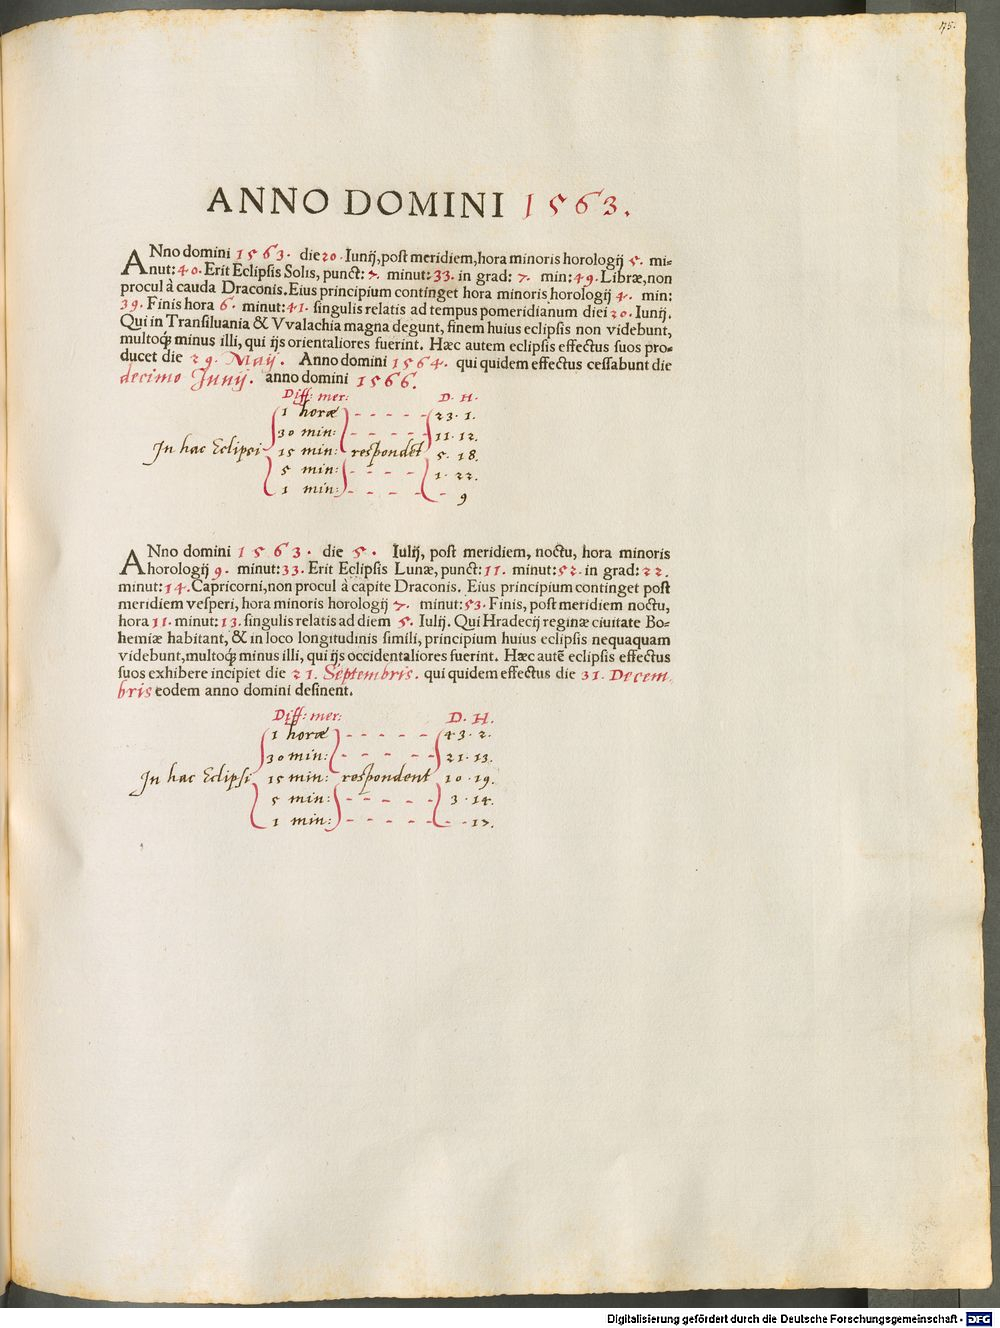 75.
ANNO DOMINI 1563.
ANno domini 1563. die 20. Iunij, post meridiem, hora minoris horologij 5. mi-
nut: 40. Erit Eclipsis Solis, punct: 7. minut: 33. in grad: 7. min: 49. Libræ, non
procul à cauda Draconis. Eius principium continget hora minoris horologij 4. min:
39. Finis hora 6. minut: 41. singulis relatis ad tempus pomeridianum diei 20. Iunij.
Qui in Transiluania & Vvalachia magna degunt, finem huius eclipsis non videbunt,
multoq; minus illi, qui ijs orientaliores fuerint. Hæc autem eclipsis effectus suos pro-
ducet die 29. Maij. Anno domini 1564. qui quidem effectus cessabunt die
decimo Junij. anno domini 1566.
Diff: mer: D. H.
1 horæ - - - - - 23. 1.
30 min: - - - - - 11. 12.
In hac Eclipsi 15 min: respondet 5. 18.
5 min: - - - - 1. 22.
1 min: - - - - - 9
ANno domini 1563. die 5. Iulij, post meridiem, noctu, hora minoris
horologij 9. minut: 33. Erit Eclipsis Lunæ, punct: 11. minut: 52. in grad: 22.
minut: 14. Capricorni, non procul à capite Draconis. Eius principium continget post
meridiem vesperi, hora minoris horologij 7. minut: 53. Finis, post meridiem noctu,
hora 11. minut: 13. singulis relatis ad diem 5. Iulij. Qui Hradecij reginæ ciuitate Bo-
hemiæ habitant, & in loco longitudinis simili, principium huius eclipsis nequaquam
videbunt, multoq; minus illi, qui ijs occidentaliores fuerint. Hæc autẽ eclipsis effectus
suos exhibere incipiet die 21. Septembris. qui quidem effectus die 31. Decem
bris eodem anno domini desinent.
Diff: mer: D. H.
1 horæ - - - - - 43. 2.
30 min: - - - - 21. 13.
In hac Eclipsi 15 min: respondent 10. 19.
5 min: - - - - - 3. 14.
1 min: - - - - - - - 17.
Digitalisierung gefördert durch die Deutsche Forschungsgemeinschaft - DFG